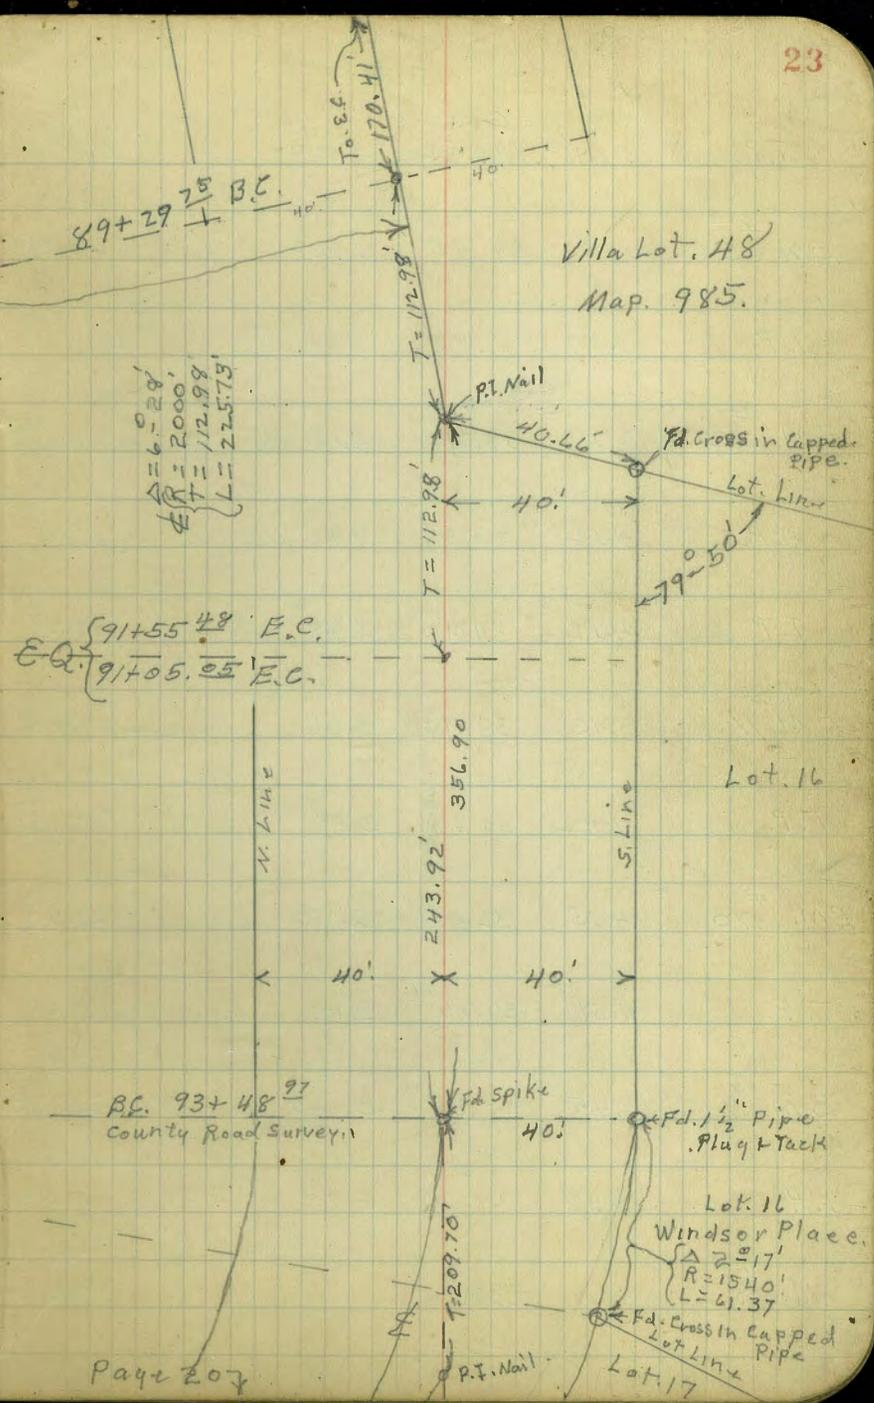 23
To E.C.
170.41'
40'
89+29 25 B.C.
40'
Villa Lot. 48
Map. 985.
T=112.98'
P.I. Nail
Δ=6°-28'
R=2000'
T=112.98'
L=225.73'
40.66'
Fd. Cross in Capped
Pipe.
Lot. Line
40.'
T=112.98'
79°-50'
EQ. 91+55 48 E.C.
91+05.05' E.C.
356.90
N. Line
S. Line
Lot. 16
243.92'
40'.
40'.
B.C. 93+48 97
County Road Survey.
Fd. Spike
40'.
Fd. 1½" Pipe
Plug & Tack
Lot. 16
Windsor Place.
Δ 2°17'
R=1540'
L=61.37
T=209.70'
Fd. Cross in Capped
Pipe
Lot Line
Lot. 17
P.I. Nail.
Page 207